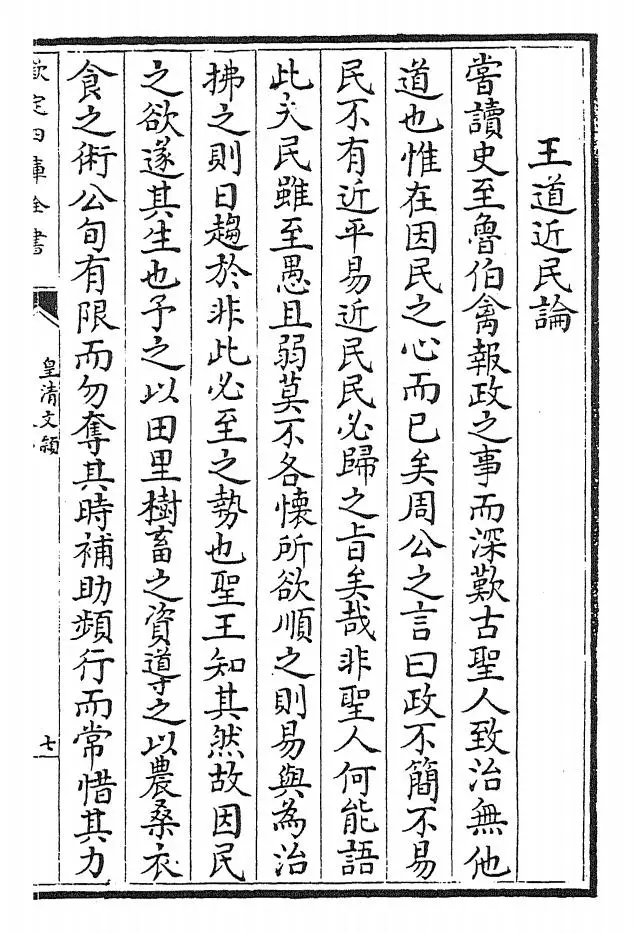 王道近民論
嘗讀史至魯伯禽報政之事而深歎古聖人致治無他
道也惟在因民之心而已矣周公之言曰政不簡不易
民不有近平易近民民必歸之旨矣哉非聖人何能語
此夫民雖至愚且弱莫不各懷所欲順之則易與為治
拂之則日趨於非此必至之勢也聖王知其然故因民
之欲遂其生也予之以田里樹畜之資導之以農桑衣
食之術公旬有限而勿奪其時補助頻行而常惜其力
欽定四庫全書
皇清文穎
七